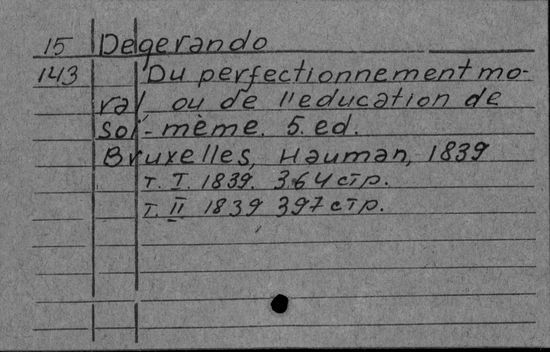 15 Degerando
143 Du perfectionnement mo-
ral ou de l'leducation de
soi-mème. 5. ed.
Bruxelles, Hauman, 1839
т. I. 1839. 364 стр.
т. II 1839 397 стр.